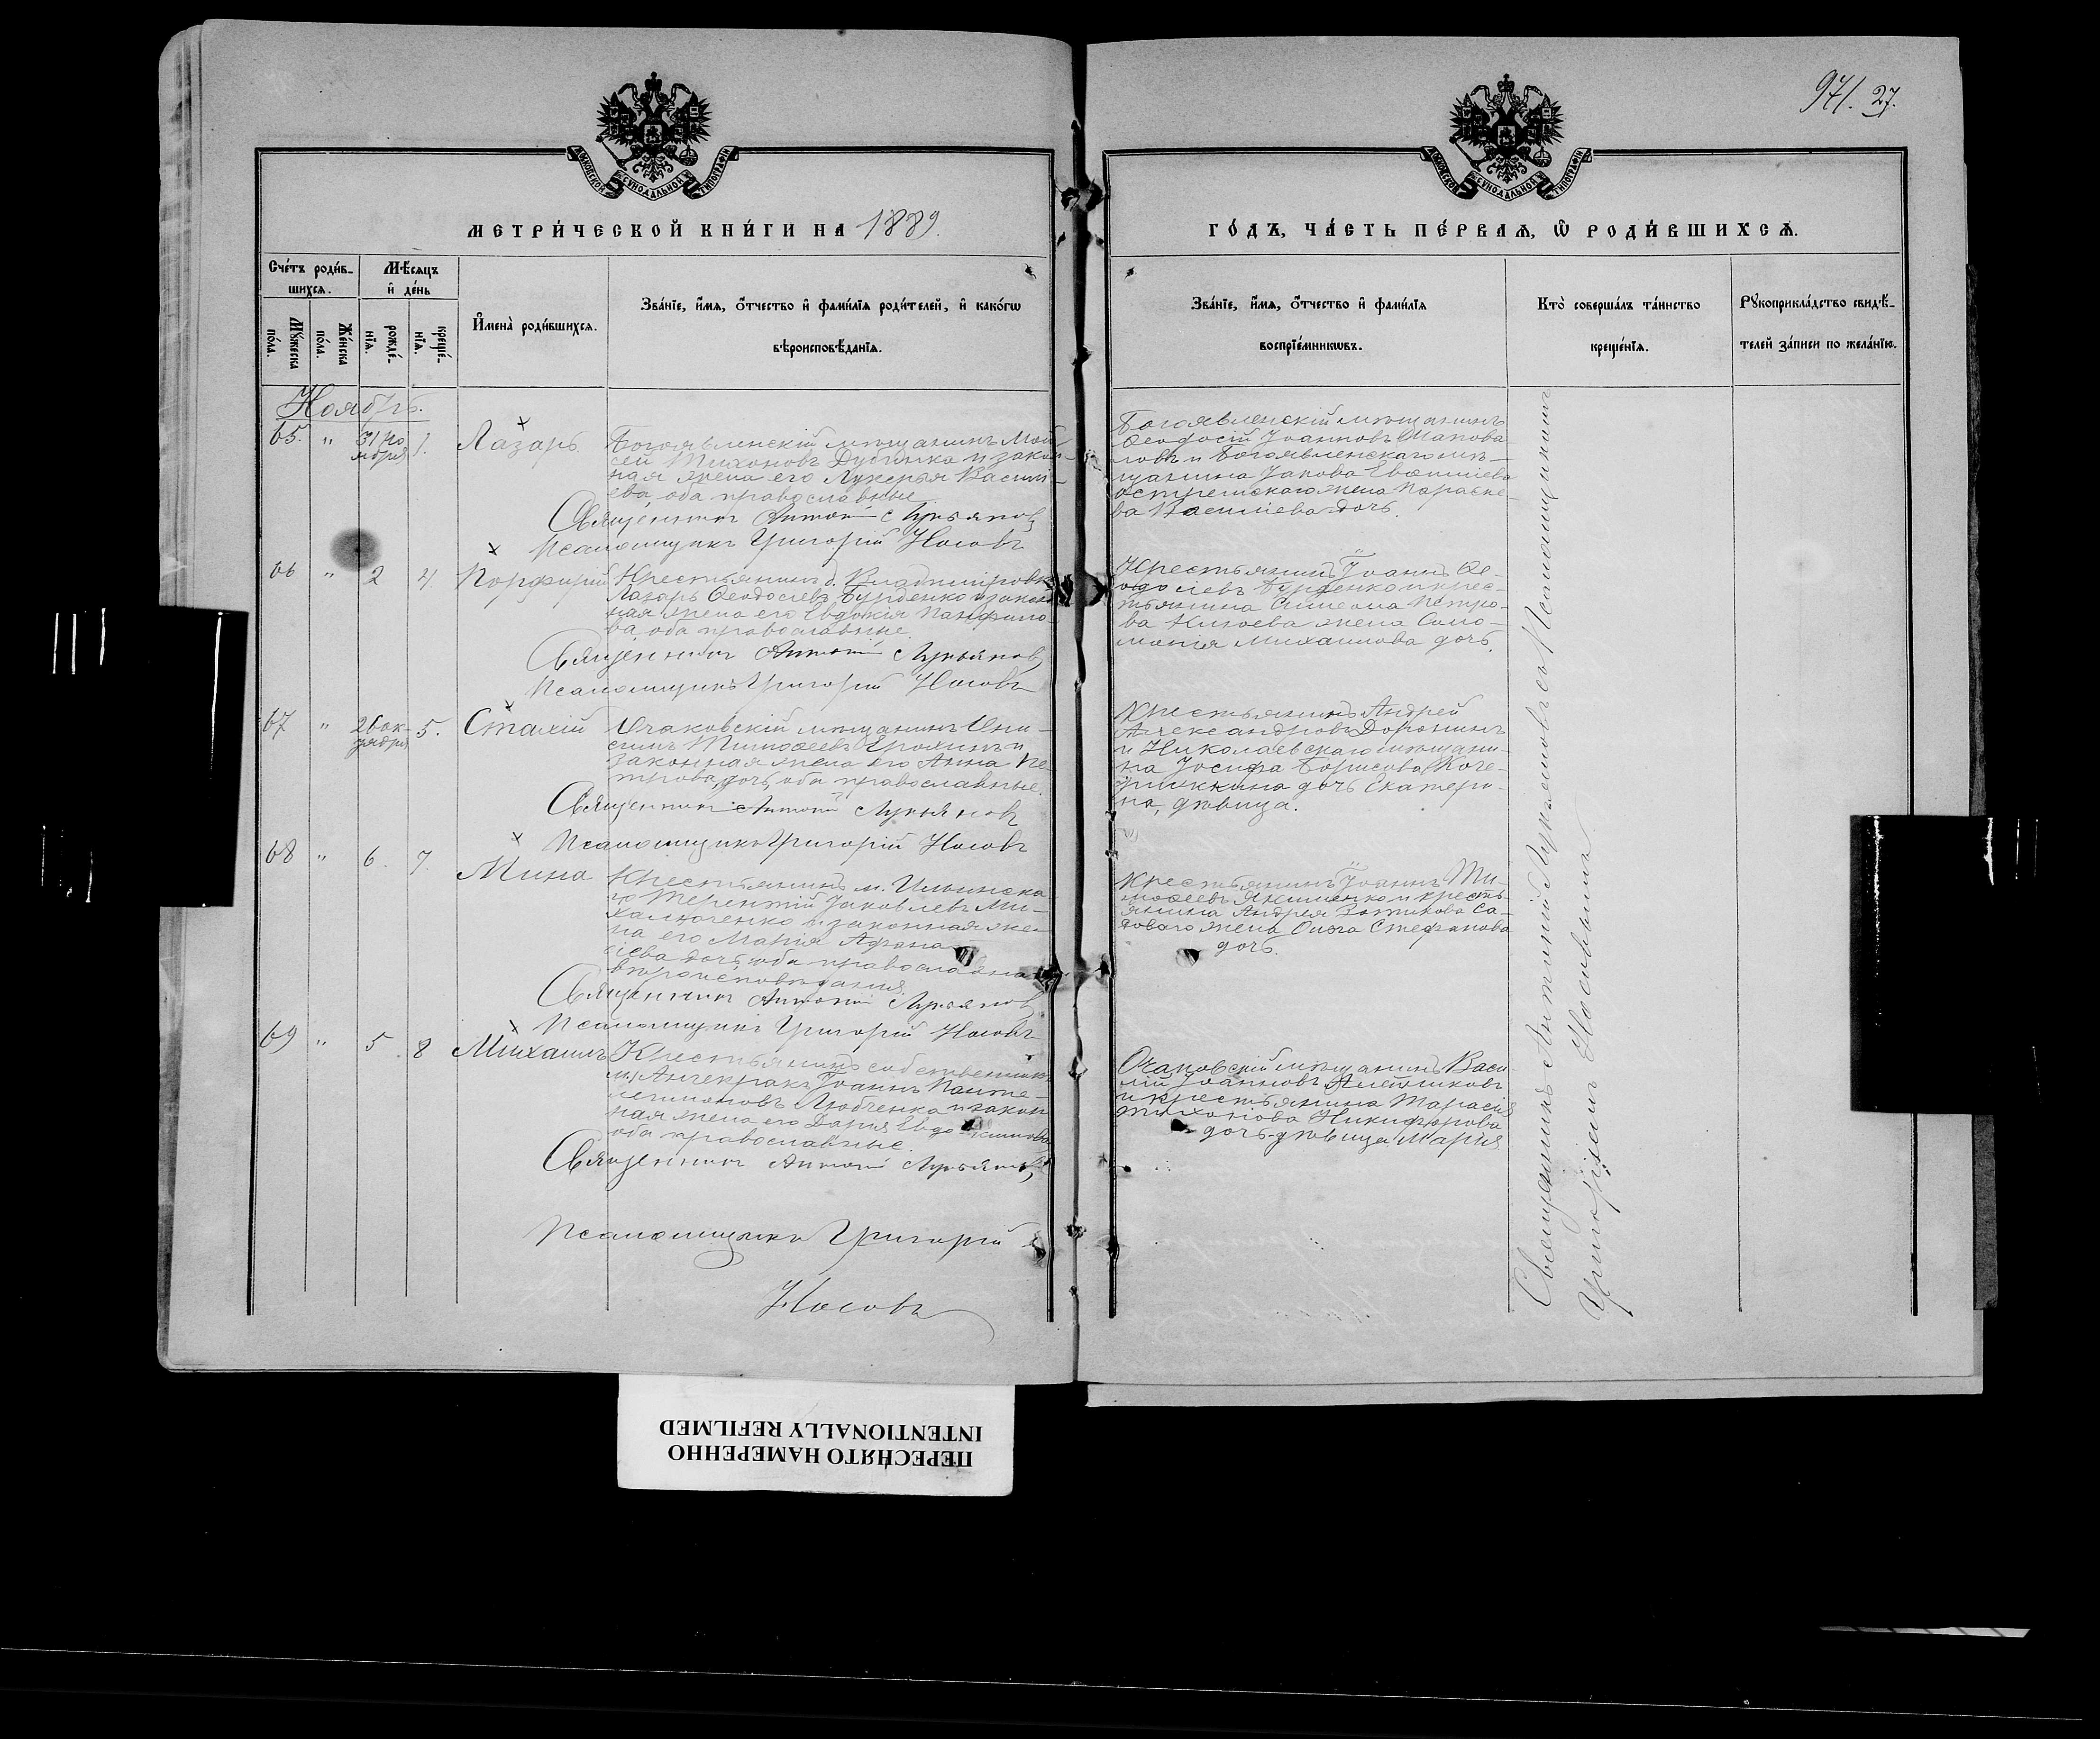 971. 27.
МОСКОВСКОЙ СѴНОДАЛЬНОЙ ТИПОГРАФІИ
МОСКОВСКОЙ СѴНОДАЛЬНОЙ ТИПОГРАФІИ
МЕТРИ́ЧЕСКОЙ КНИ́ГИ НА 1889.
ГО́ДЪ, ЧА́СТЬ ПЕ́РВАѦ, Ѿ РОДИ́ВШИХСѦ.
Сче́тъ роди́в-
шихсѧ.
Мѣ́сѧцъ
и҆ де́нь
Мꙋ́жеска
по́ла.
Же́нска
по́ла.
рожде́-
нїѧ.
креще́-
нїѧ.
И҆мена̀ роди́вшихсѧ.
Зва́нїе, и҆́мѧ, ѻ҆́тчество и҆ фами́лїѧ роди́телей, и҆ како́гѡ
вѣроисповѣ́данїѧ.
Зва́нїе, и҆́мѧ, ѻ҆́тчество и҆ фами́лїѧ
воспрїе́мникѡвъ.
Кто̀ соверша́лъ та́инство
креще́нїѧ.
Рꙋкоприкла́дство свидѣ́-
телей за́писи по жела́нїю.
Ноябрь.
65. " 31 1. Лазарь
Богоявленскій мѣщанинъ Мой-
сей Тихоновъ Дубинка и закон-
ная жена его Лукерья Васил-
ева, оба православные
Священникъ Антоній Лукьяновъ
Псаломщикъ Григорій Носовъ
Богоявленскій мѣщанинъ
Ѳеодосій Іоанновъ Шапова
ловъ и Богоявленскаго мѣ-
щанина Іакова
жена Параске-
ва Василіева дочь.
66 " 2 4. Порфирій
Крестьянинъ д. Владиміровки
Лазарь Ѳеодосіевъ Бурденко и закон
ная жена его Евдокія Панфило-
ва, оба православные.
Священникъ Антоній Лукьяновъ
Псаломщикъ Григорій Носовъ
Крестьянинъ Іоаннъ Ѳе-
одосіевъ Бурденко и крес-
тьянина Симеона Петро-
ва жена Соло-
монія Михаилова дочь.
67 " 26 ок-
тября 5. Стахій
Очаковскій мѣщанинъ Они-
симъ Тимоѳеевъ Ерохинъ и
законная жена его Анна Пе-
трова дочь, оба православные.
Священникъ Антоній Лукьяновъ
Псаломщикъ Григорій Носовъ
Крестьянинъ Андрей
Александровъ Доронинъ
и Николаевскаго мѣщани-
на Іосифа Борисова
дочь Екатери-
на, дѣвица.
68 " 6. 7. Мина
Крестьянинъ м. Ильинска-
го Терентій Іаковлевъ Ми-
халюченко и законная же-
на его Марія Афана
сіева дочь, оба православна
вѣроисповѣданія.
Священникъ Антоній Лукьяновъ
Псаломщикъ Григорій Носовъ
Крестьянинъ Іоаннъ Ти-
моѳеевъ Якименко и кресть-
янина Андрея Са-
доваго жена Ольга Стефанова
дочь.
69 " 5. 8 Михаилъ
Крестьянинъ собственникъ
м. Анчекракъ Іоаннъ Панте-
леимоновъ Любченка и закон
ная жена его Дарія Евдокимова
оба православные.
Священникъ Антоній Лукьяновъ
Псаломщикъ Григорій
Носовъ
Очаковскій мѣщанинъ Васи-
лій Іоанновъ
и крестьянина Тарасія
Никифорова
дочь дѣвица Марія
Священникъ Антоній Лукьяновъ со Псаломщикомъ
Григоріемъ Носовымъ
ПЕРЕСНЯТО НАМЕРЕННО
INTENTIONALLY REFILMED